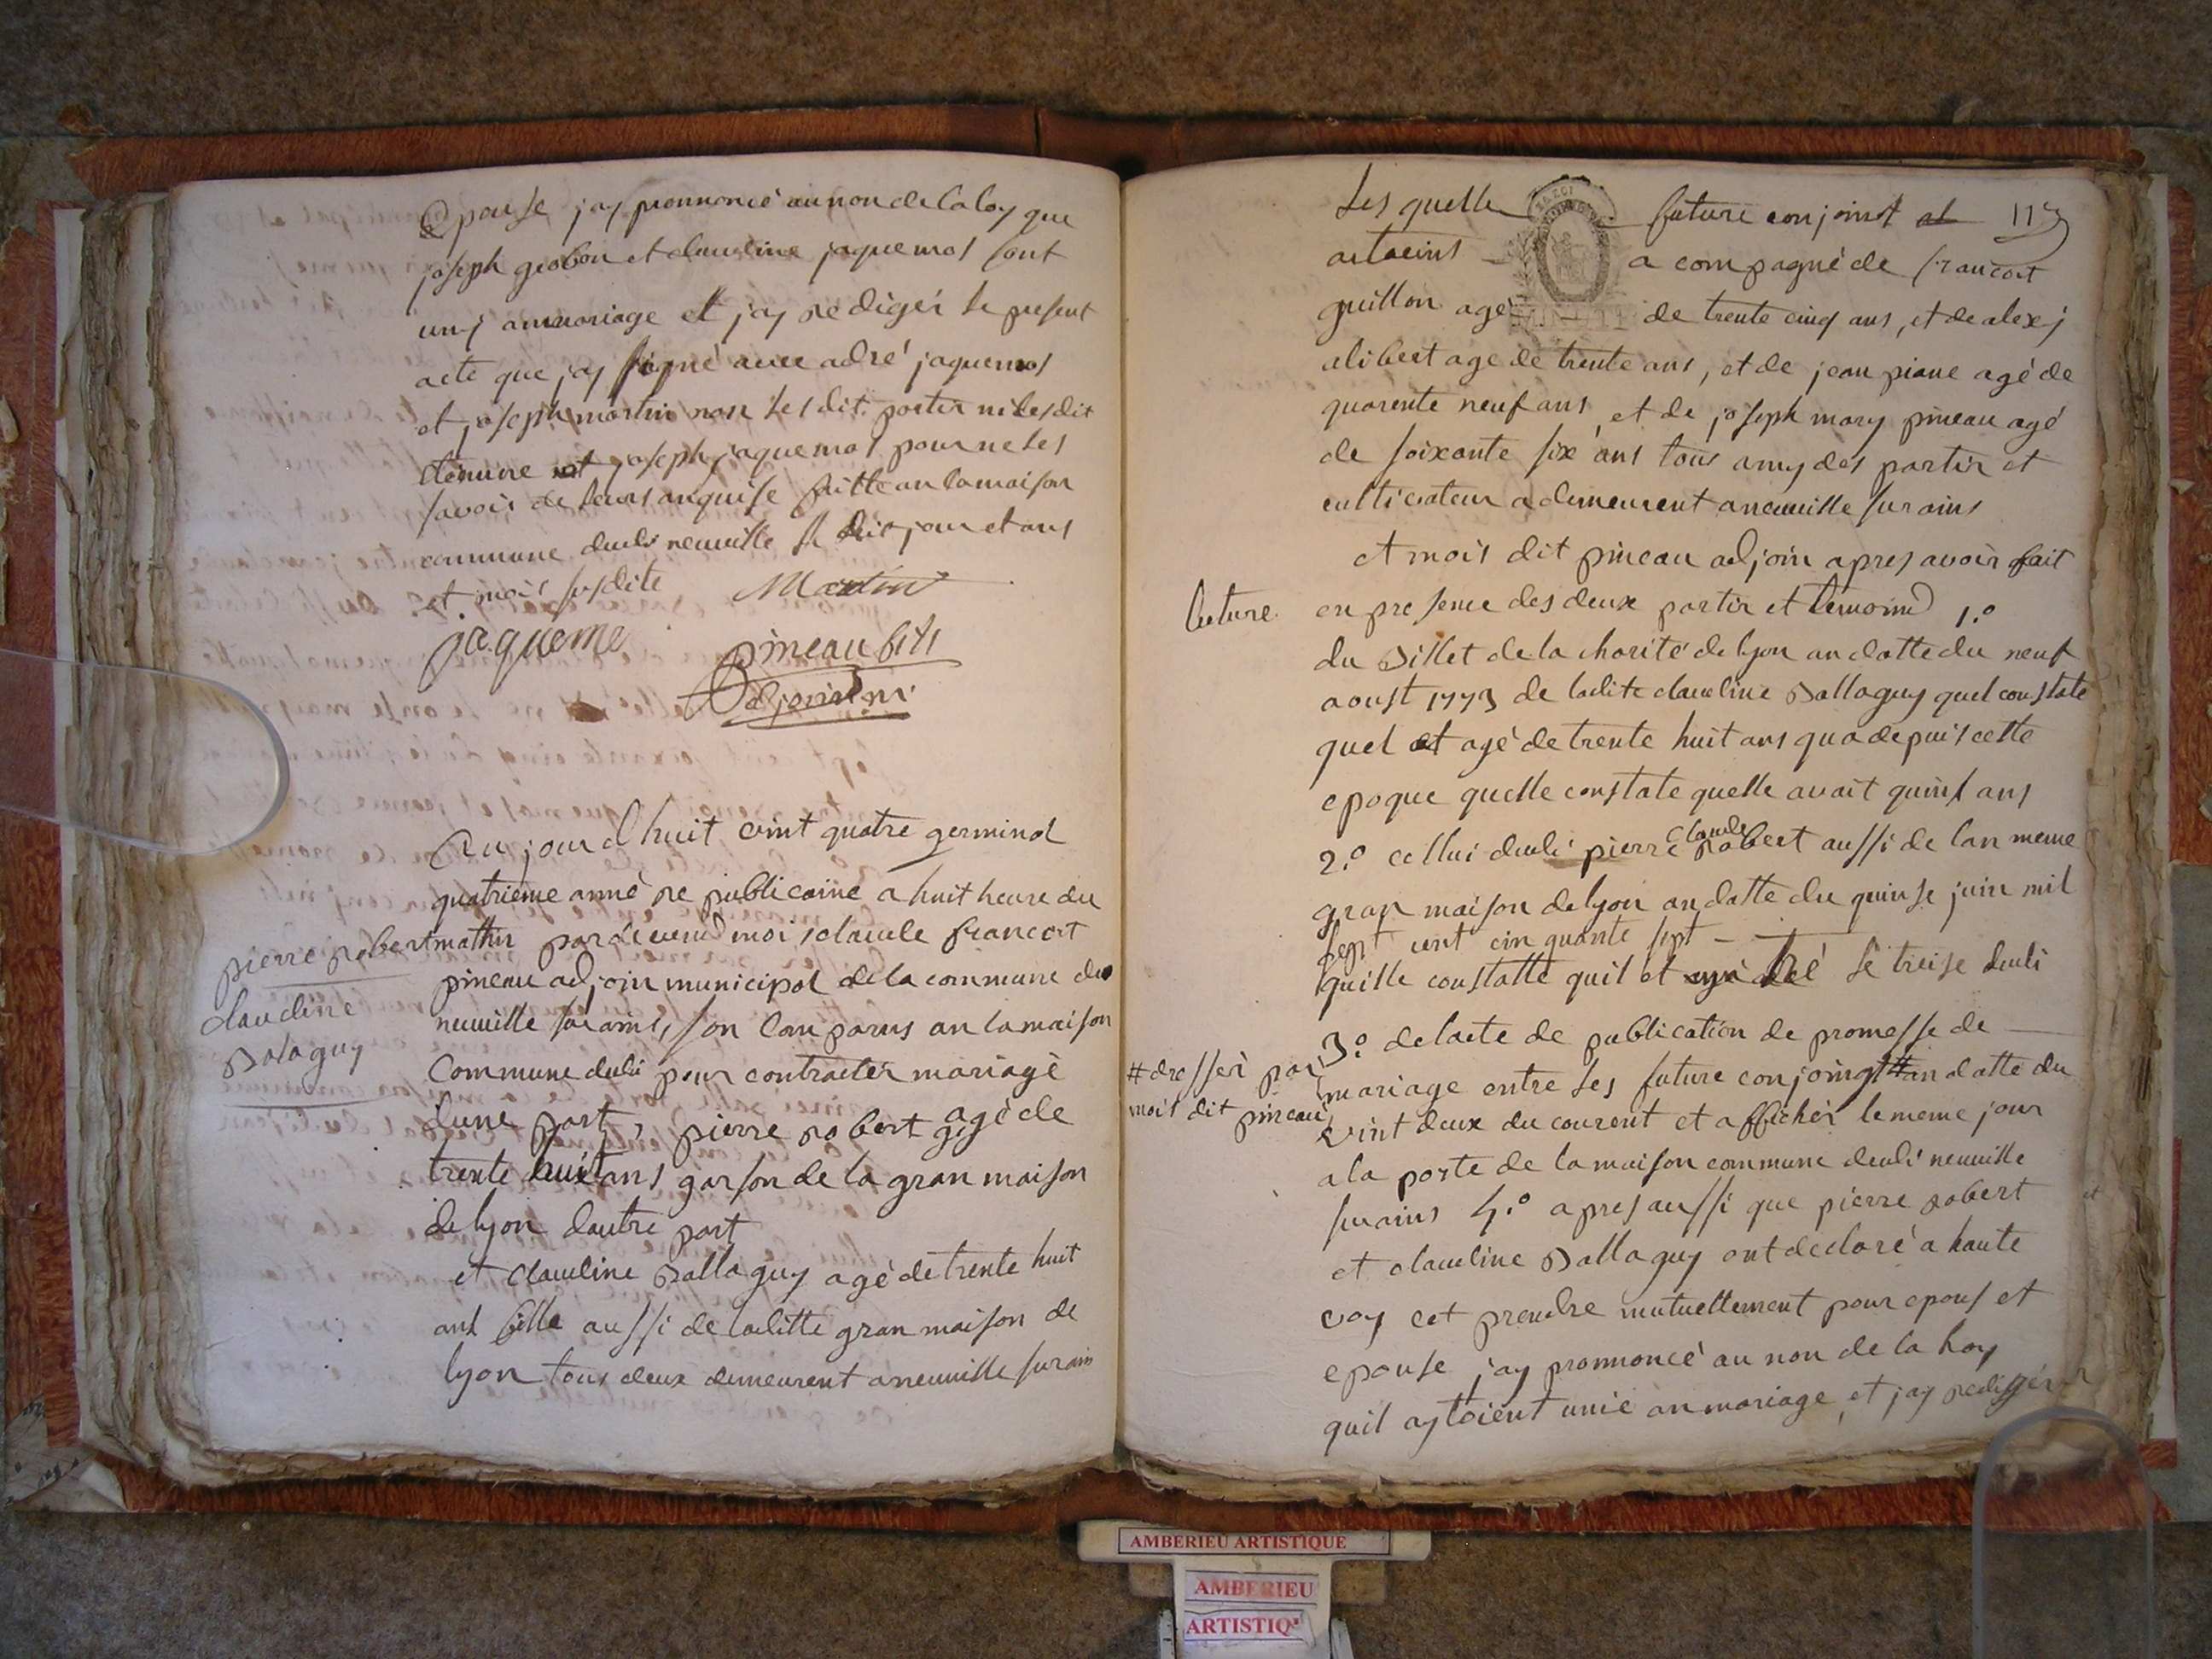 Epouse jay pronnoncé au non de la loy que
joseph grobon et claudine jaquemos sont
uny anmariage et jay redigér le present
acte que jay signé avec adré jaquemos
et joseph martin non les dit partir ni lesdit
joseph jaquemos pour ne les
savoir de leurs anquise faitte an la maison
commune dudi neuville le dit jour et ans
et mois susdite Martin
jaqueme pineau fils
adjoint
Au jourdhuit vint quatre germinal
quatrieme anné republicaine a huit heure du
mattin pardevend moi claude francoit
pierre robert
claudine
Balaguy
pineau adjoin municipal de la commune de
neuville surains, son comparus an la maison
Commune dudi pour contracter mariagè
dune part, pierre robert agé de
trente huit ans garson de la gran maison
de lyon dautre part
et claudine Ballaguy agé de trente huit
ans fille aussi de laditte gran maison de
lyon tous deux demeurent aneuville surain
Les quelle future conjoinst et 113
a compagné de francoit
guillon agé de trente cinq ans, et de alexj
alibert age de trente ans, et de jean piane agé de
quarente neuf ans, et de joseph mary pineau agé
de soixante six ans tous amy des partir et
cultivateur a demeurent aneuville surains
et mois dit pineau adjoin apres avoir fait
lecture en presence des deux partir et temoind 1.º
du Billet de la charité de lyon an datte du neuf
aoust 1773 de ladite claudine Ballaguy quel constate
quel et agé de trente huit ans qua depuis cette
epoque quelle constate quelle avait quinse ans
2.º cellui dudi pierre claude robert aussi de lan meme
gran maison de lyon an datte du quinse juin mil
sept cent cin quante sept
quille constatte quil et né le treise dudi
3.º delacte de publication de promesse de
mariage entre les future conjoingt # an datte du
# dressér par
mois dit pineau
vint deux du courent et affichér le meme jour
a la porte de la maison commune dudi neuville
surains 4.º apres aussi que pierre robert
et claudine Ballaguy ont declaré a haute
voy cet prendre mutuellement pour epous et
epouse jay pronnoncé au non de la loy
quil aytoient unie an mariage, et jay redigér